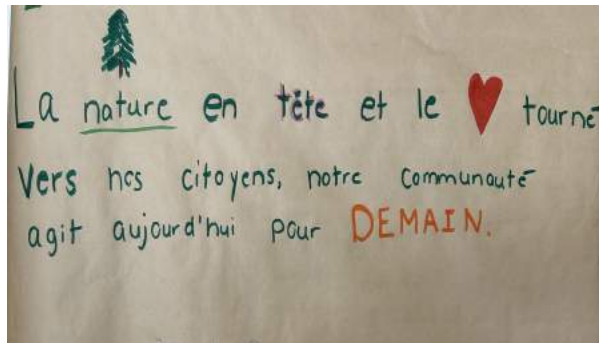 La nature en tête et le ♥ tourné
vers nos citoyens, notre communauté
agit aujourd'hui pour DEMAIN.